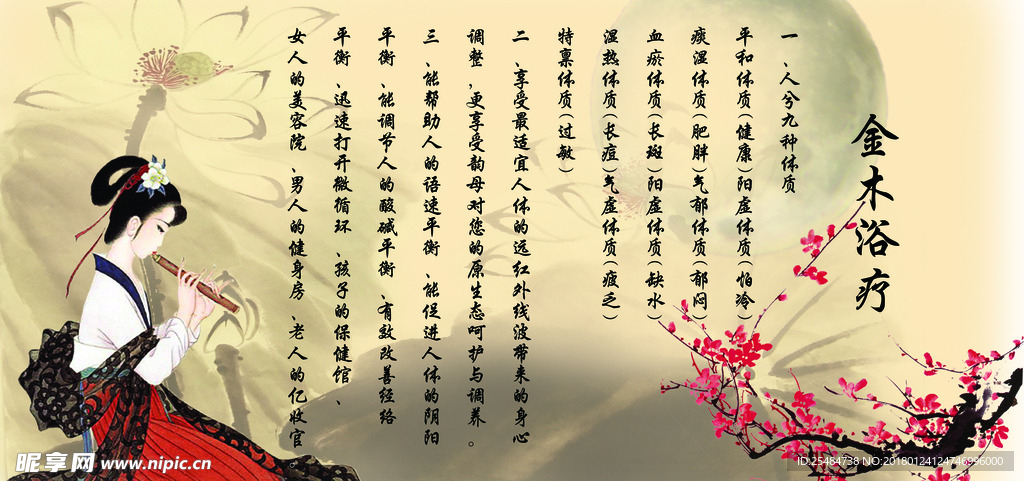 金木浴疗
一、人兮九种体质
平和体质(健康)阳虚体质(怕冷)
痰湿体质(肥胖)气郁体质(郁闷)
血瘀体质(长斑)阳虚体质(缺水)
湿热体质(长痘)气虚体质(疲乏)
特禀体质(过敏)
二、享受最适宜人体的远红外线波带来的身心
调整,更享受韵母对您的原生态呵护与调养。
三、能帮助人的语速平衡、能促进人体的阴阳
平衡、能调节人的酸碱平衡、有效改善经络
平衡、迅速打开微循环、孩子的保健馆、
女人的美容院、男人的健身房、老人的亿收官。
昵享网 www.nipic.cn
ID:25484738 NO:20180124124746996000